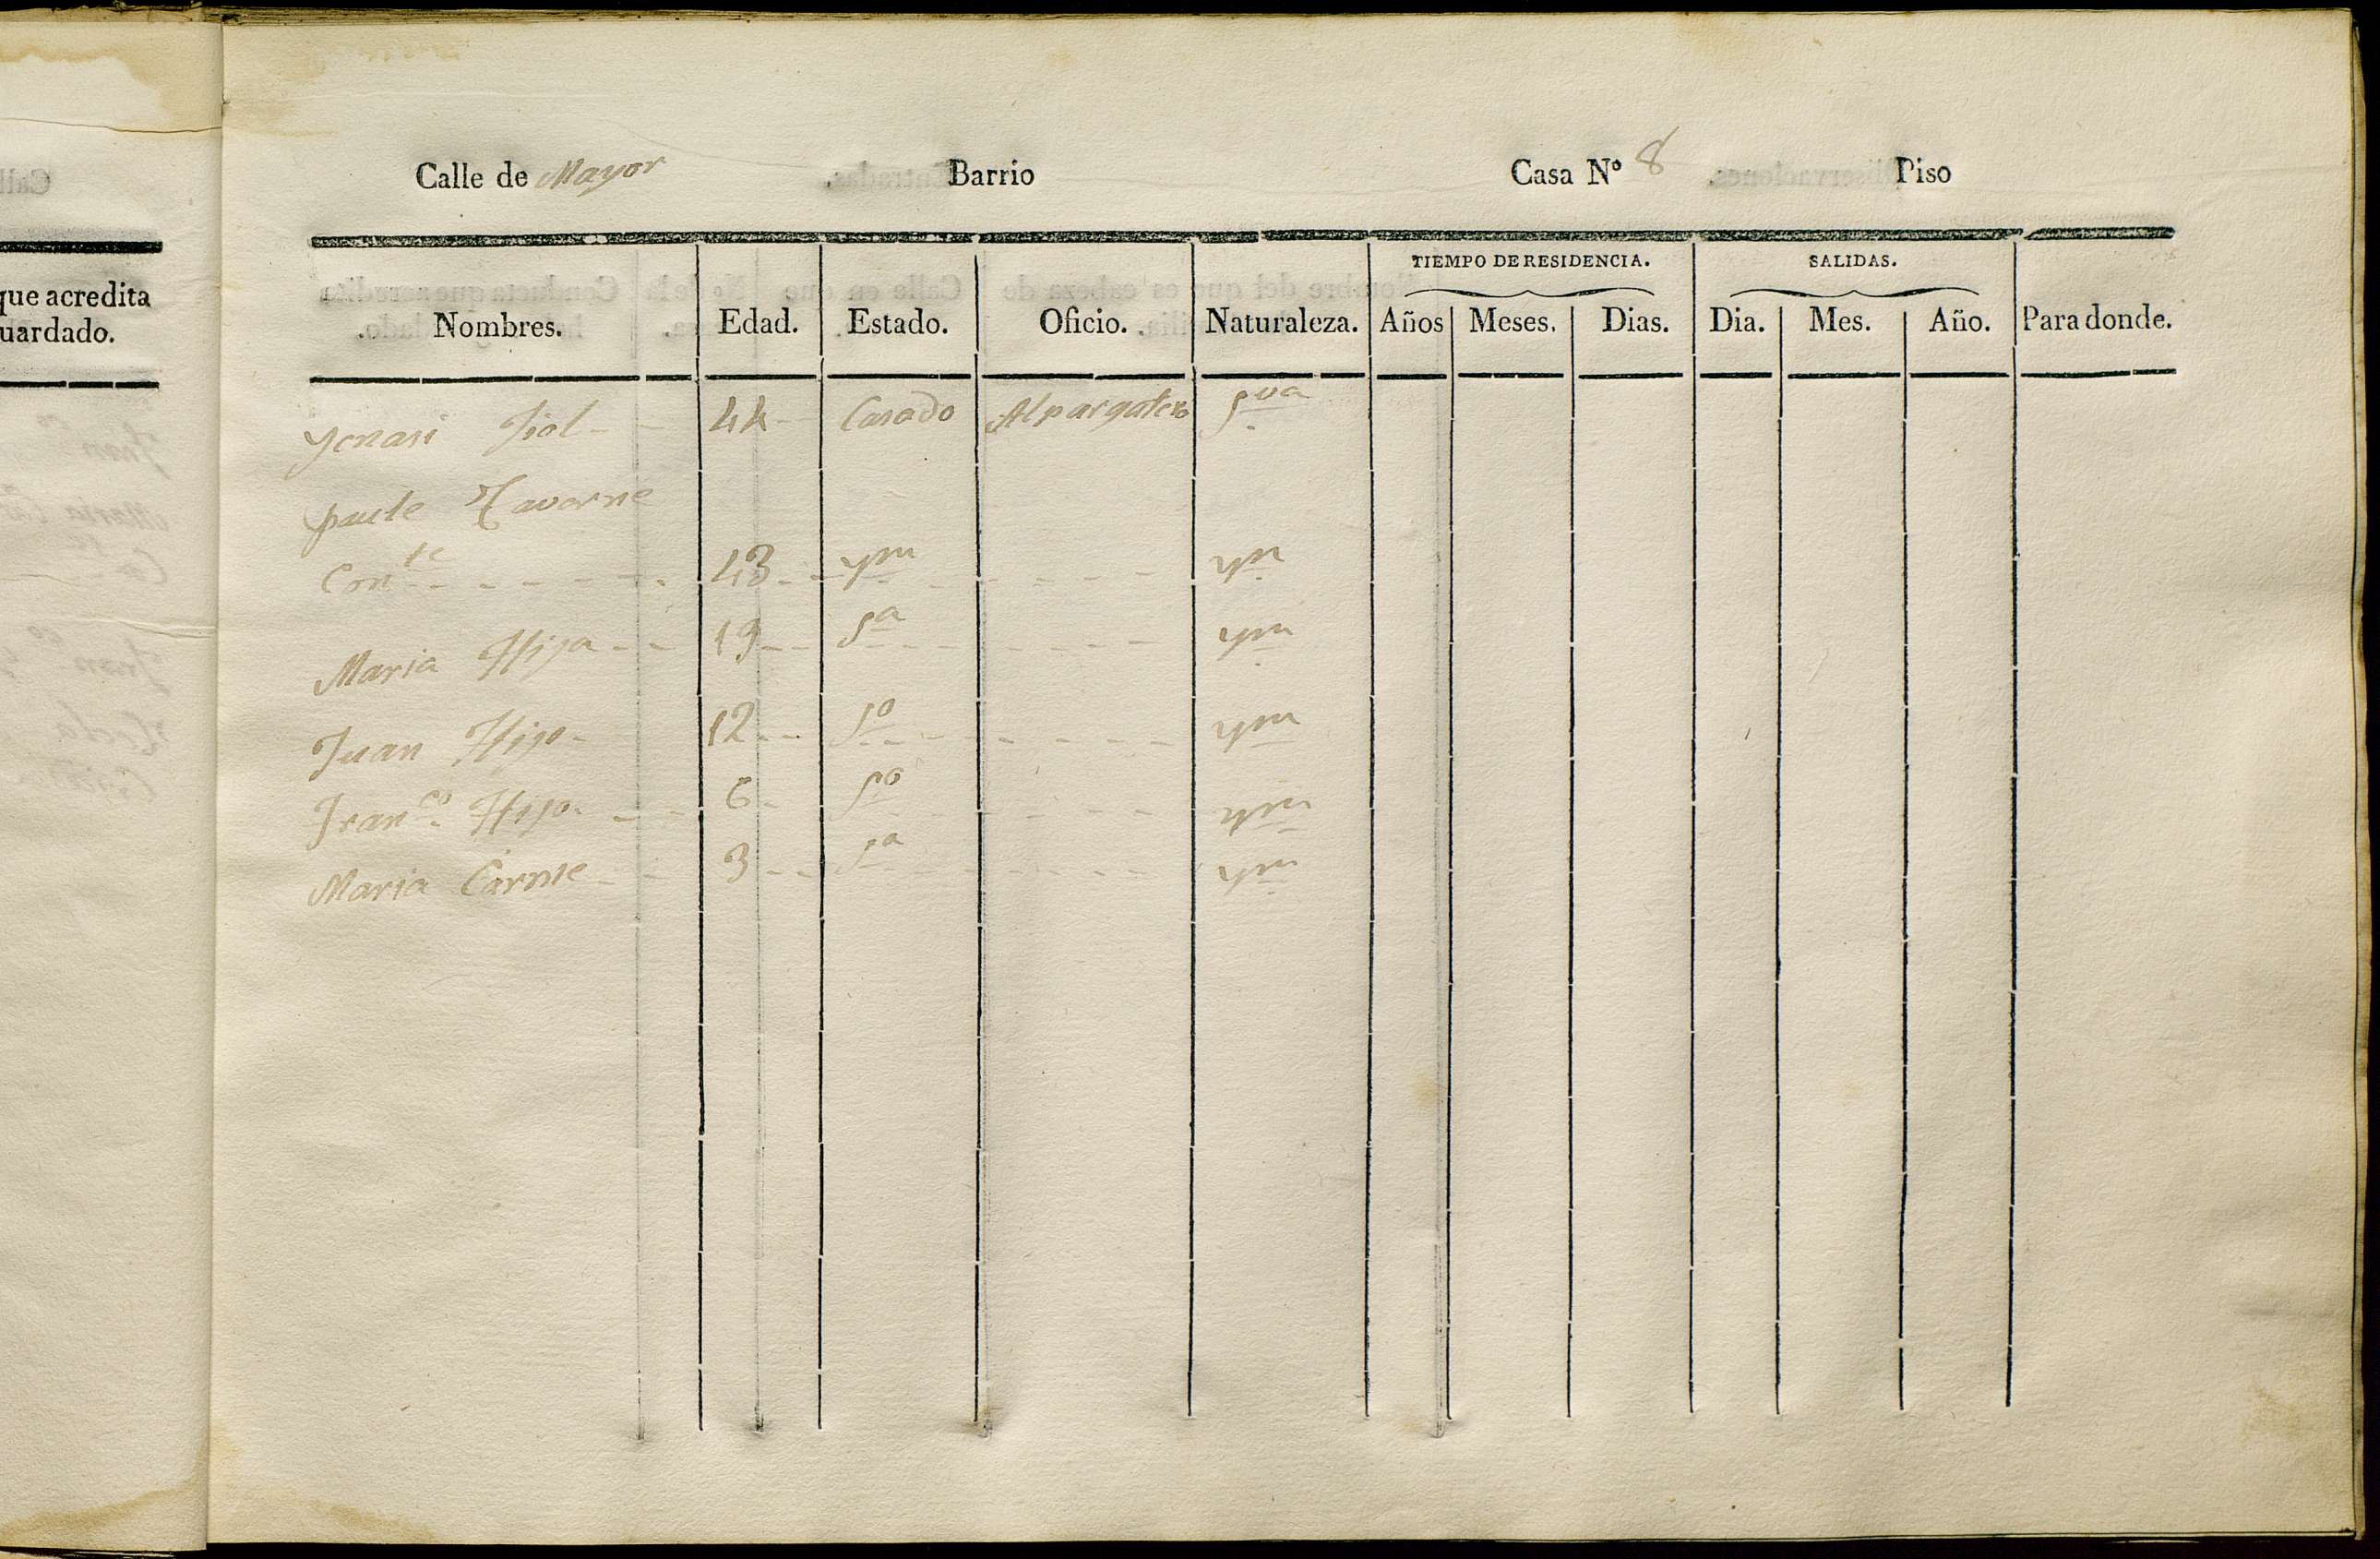 que acredita
uardado.
Calle de Mayor Barrio Casa Nº 8 Piso
TIEMPO DE RESIDENCIA. SALIDAS.
Nombres. Edad. Estado. Oficio. Naturaleza. Años Meses. Dias. Dia. Mes. Año. Para donde.
44 Casado Alpargatero
Taverne
Conte 43 ym ym
Maria Hija 19 sa ym
Juan Hijo 12 so ym
Franco Hijo 6 so ym
Maria Carme 3 sa ym